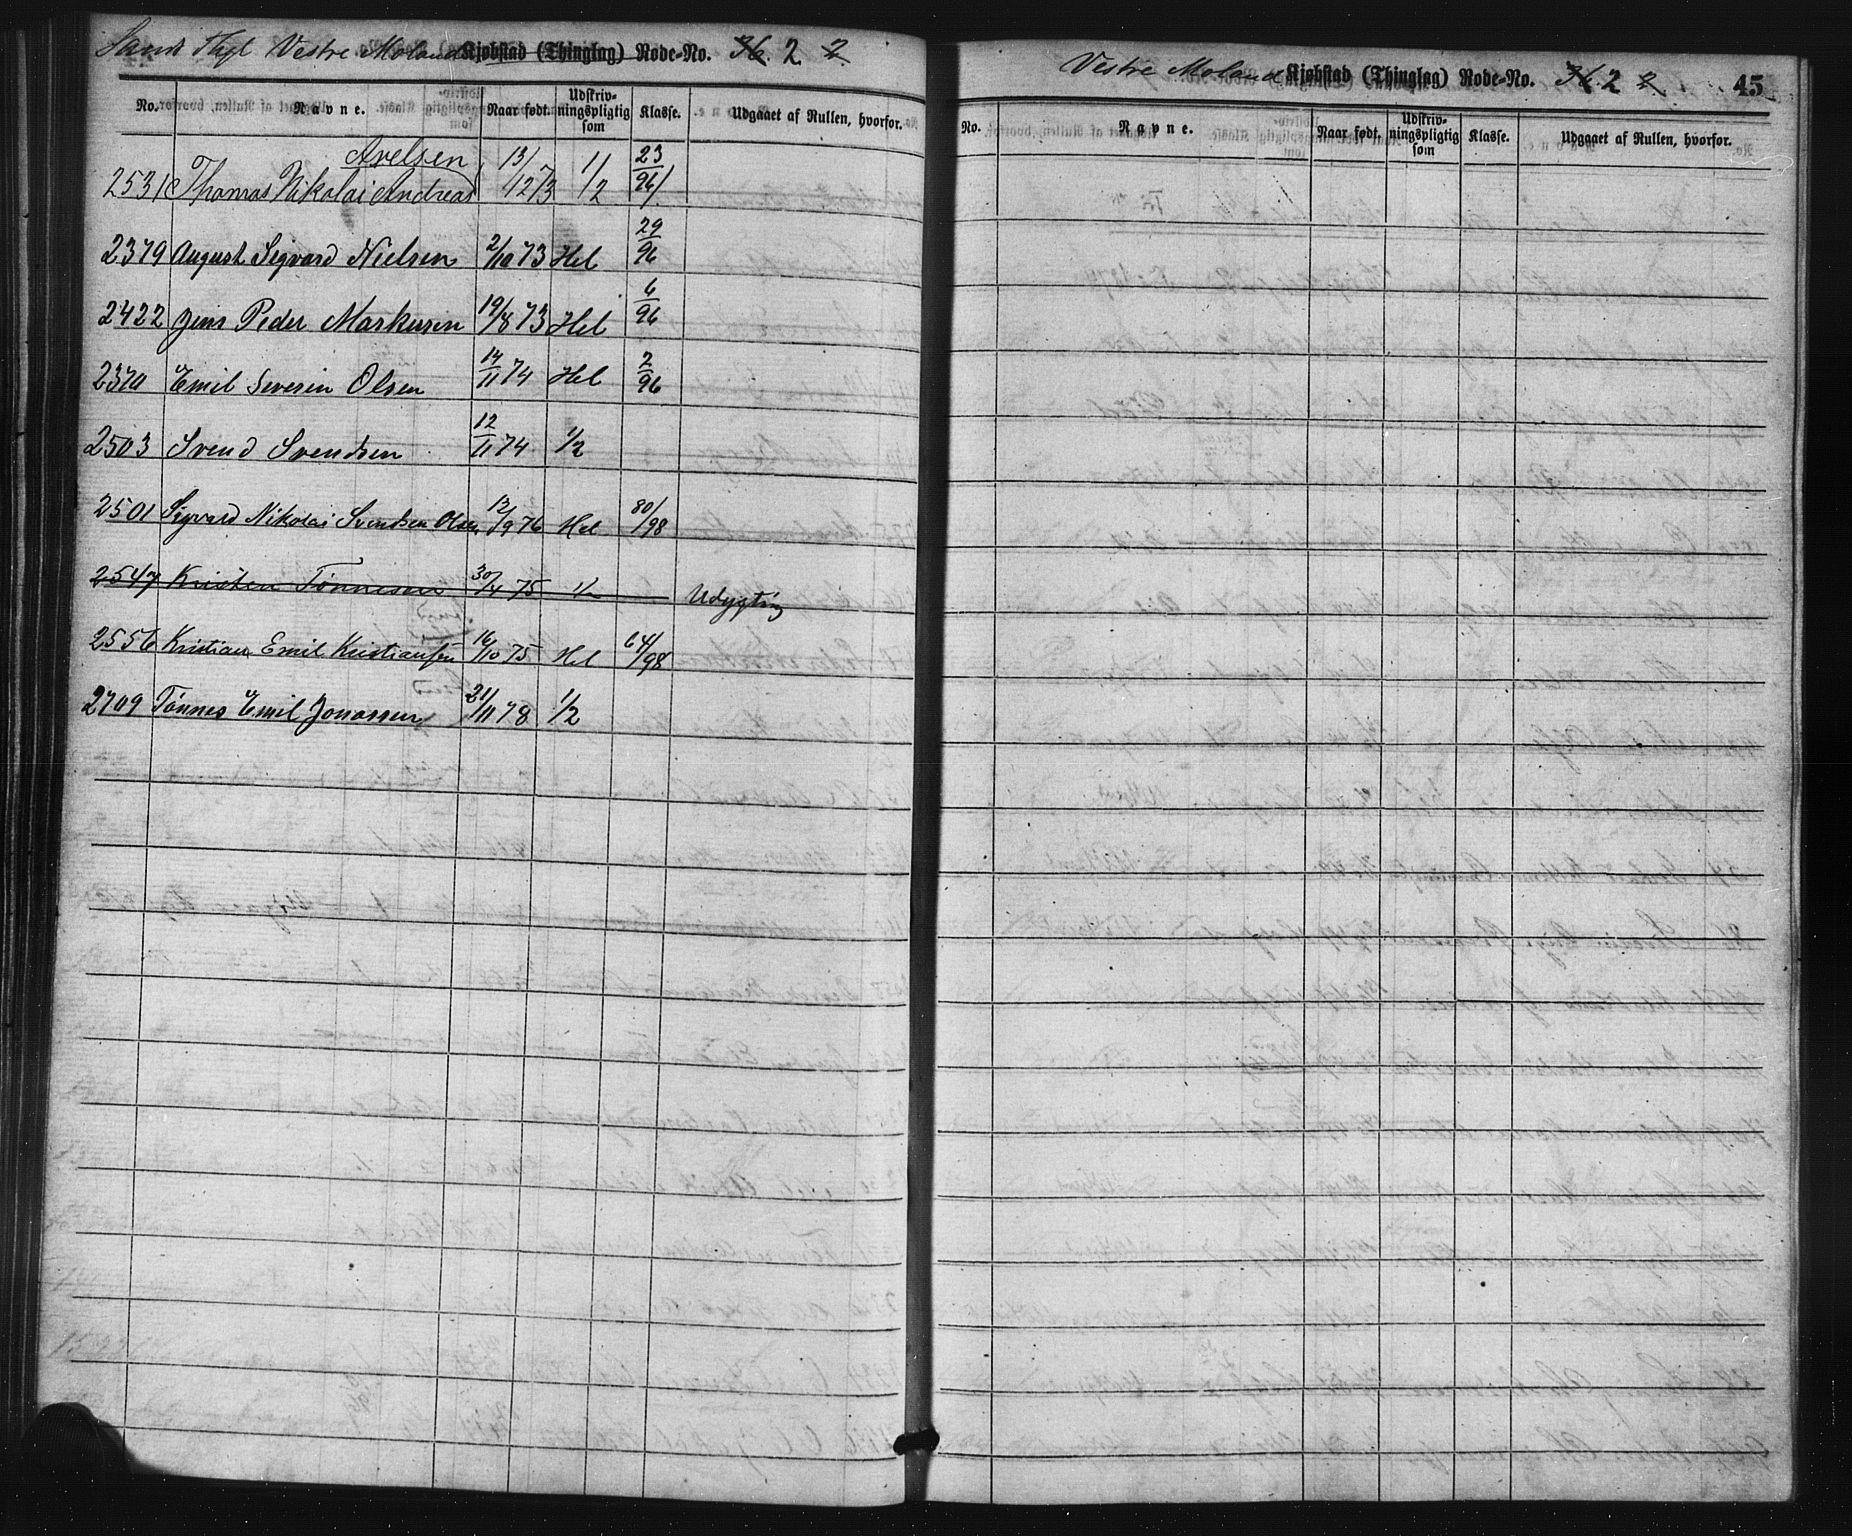 Vestre Moland Kjøbstad (Thinglag) Rode-No. 36. 2 2
No. Navne. Naar født. Udskriv-ningspligtig som Klasse. Udgaaet af Rullen, hvorfor.
Axelsen
2531 Thomas Nikolai Andreas 13/12 73 1/2 23/96
2379 August Sigvard Nielsen 2/10 73 Hel 29/96
2422 Jens Peder Markusen 19/8 73 Hel 6/96
2370 Emil Severin Olsen 14/11 74 Hel 2/96
2503 Svend Svendsen 12/11 74 1/2
2501 Sigvard Nikolai Svendsen Olsen 12/9 76 Hel 80/98
2547 Kristen Tønnesen 30/4 75 1/2 Udygtig
2556 Kristian Emil Kristiansen 16/10 75 Hel 64/98
2709 Tønnes Emil Jonassen 21/11 78 1/2
Vestre Moland Kjøbstad (Thinglag) Rode-No. 36. 2 2 45
No. Navne. Naar født. Udskriv-ningspligtig som Klasse. Udgaaet af Rullen, hvorfor.